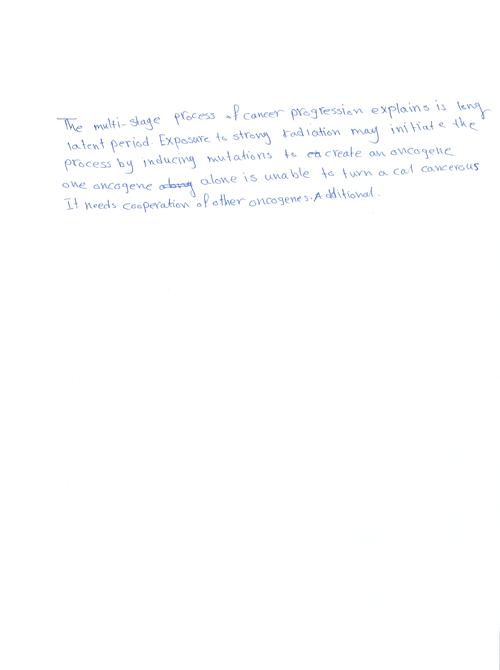 The multi-stage process of cancer progression explains is long
latent period. Exposure to strong radiation may initiate the
process by inducing mutations to create an oncogene
one oncogene alone is unable to turn a cal cancerous
It needs cooperation of other oncogenes. Additional.